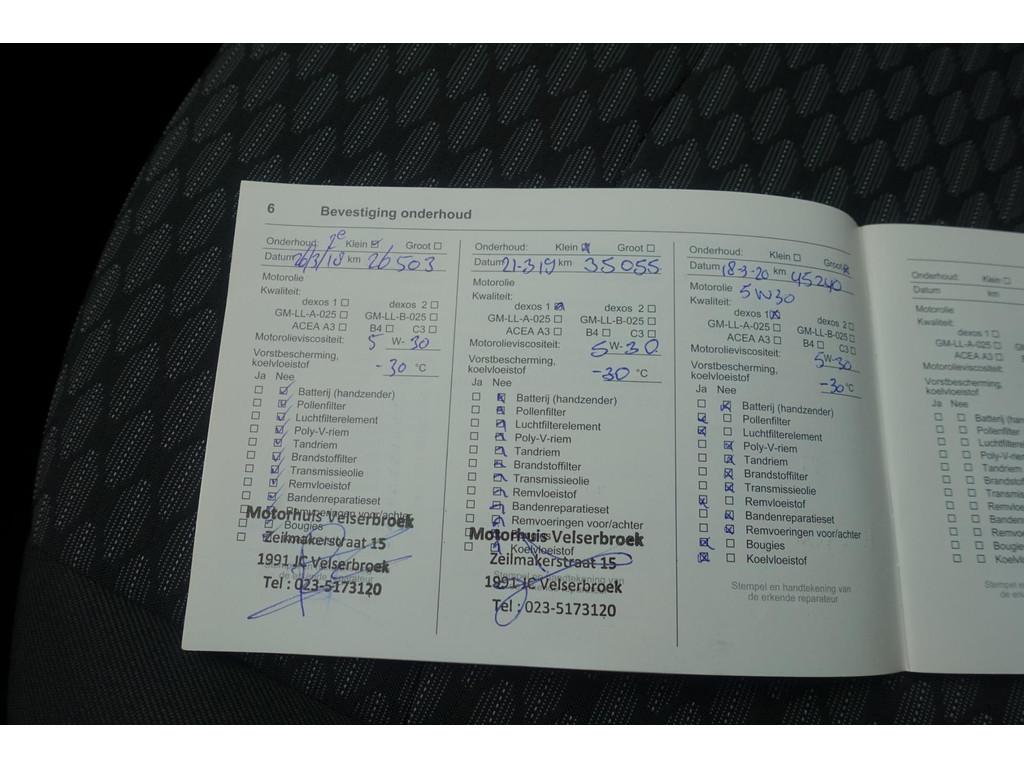 6 Bevestiging onderhoud
Onderhoud: 2e Klein ☑ Groot ☐
Datum 26/3/18 km 26503
Motorolie
Kwaliteit:
dexos 1 ☐ dexos 2 ☐
GM-LL-A-025 ☐ GM-LL-B-025 ☐
ACEA A3 ☐ B4 ☐ C3 ☐
Motorolieviscositeit: 5 W- 30
Vorstbescherming,
koelvloeistof -30 °C
Ja Nee
☐ ☑ Batterij (handzender)
☐ ☑ Pollenfilter
☐ ☑ Luchtfilterelement
☐ ☑ Poly-V-riem
☐ ☑ Tandriem
☐ ☑ Brandstoffilter
☐ ☑ Transmissieolie
☐ ☑ Remvloeistof
☐ ☑ Bandenreparatieset
☐ ☑ Remvoeringen voor/achter
☐ ☑ Bougies
☐ ☑ Koelvloeistof
Motorhuis Velserbroek
Zeilmakerstraat 15
1991 JC Velserbroek
Tel : 023-5173120
Onderhoud: Klein ☒ Groot ☐
Datum 21-3-19 km 35055
Motorolie
Kwaliteit:
dexos 1 ☒ dexos 2 ☐
GM-LL-A-025 ☐ GM-LL-B-025 ☐
ACEA A3 ☐ B4 ☐ C3 ☐
Motorolieviscositeit: 5 W- 30
Vorstbescherming,
koelvloeistof -30 °C
Ja Nee
☐ ☒ Batterij (handzender)
☐ ☒ Pollenfilter
☐ ☒ Luchtfilterelement
☐ ☒ Poly-V-riem
☐ ☒ Tandriem
☐ ☒ Brandstoffilter
☐ ☒ Transmissieolie
☐ ☒ Remvloeistof
☐ ☒ Bandenreparatieset
☐ ☒ Remvoeringen voor/achter
☐ ☒ Bougies
☐ ☒ Koelvloeistof
Motorhuis Velserbroek
Zeilmakerstraat 15
Stempel en handtekening van
1991 JC Velserbroek
Tel : 023-5173120
Onderhoud: Klein ☐ Groot ☒
Datum 18-3-20 km 45240
Motorolie 5W30
Kwaliteit:
dexos 1 ☒ dexos 2 ☐
GM-LL-A-025 ☐ GM-LL-B-025 ☐
ACEA A3 ☐ B4 ☐ C3 ☐
Motorolieviscositeit: 5 W- 30
Vorstbescherming,
koelvloeistof -30 °C
Ja Nee
☐ ☒ Batterij (handzender)
☒ ☐ Pollenfilter
☒ ☐ Luchtfilterelement
☐ ☒ Poly-V-riem
☐ ☒ Tandriem
☐ ☒ Brandstoffilter
☐ ☒ Transmissieolie
☒ ☐ Remvloeistof
☐ ☒ Bandenreparatieset
☐ ☒ Remvoeringen voor/achter
☒ ☐ Bougies
☒ ☐ Koelvloeistof
Stempel en handtekening van
de erkende reparateur
Onderhoud: Klein ☐
Datum km
Motorolie
Kwaliteit:
dexos 1 ☐
GM-LL-A-025 ☐
ACEA A3 ☐
Motorolieviscositeit:
Vorstbescherming,
koelvloeistof
Ja Nee
☐ ☐ Batterij
☐ ☐ Pollenfilter
☐ ☐
☐ ☐ Poly-V-riem
☐ ☐ Tandriem
☐ ☐
☐ ☐
☐ ☐
☐ ☐
☐ ☐
☐ ☐ Bougies
☐ ☐
Stempel en